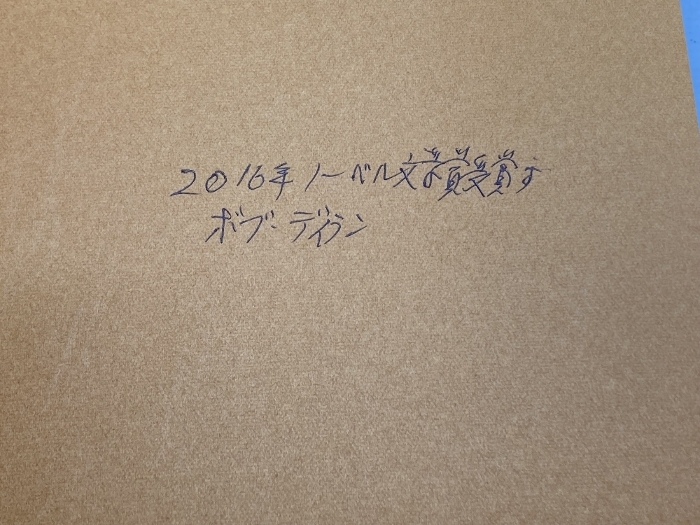 2016年ノーベル文学賞受賞す
ボブ・ディラン